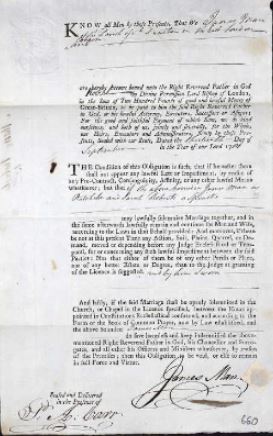 KNOW all Men by these Presents, That We James Man
of the Parish of
are hereby become bound unto the Right Reverend Father in God
by Divine Permission Lord Bishop of London,
in the Sum of Two Hundred Pounds of good and lawful Money of
Great-Britain, to be paid to him the said Right Reverend Father
in God, or his lawful Attorney, Executors, Successors or Assigns;
For the good and faithful Payment of which Sum, we do bind
ourselves, and both of us, jointly and severally, for the Whole,
our Heirs, Executors and Administrators, firmly by these Pre-
sents, sealed with our Seals, Dated the
Day of
September
in the Year of our Lord
THE Condition of this Obligation is such, that if hereafter there
shall not appear any lawful Let or Impediment, by reason
of any Pre-Contract, Consanguinity, Affinity, or any other lawful Means
whatsoever; but that he the above bounden James Man a
Batchelor and Sarah Roberts a Spinster
may lawfully solemnize Marriage together, and in
the same afterwards lawfully remain and continue like Man and Wife,
according to the Laws in that behalf provided: And moreover, if there
be not at this present Time any Action, Suit, Plaint, Quarrel, or De-
mand, moved or depending before any Judge Ecclesiastical or Tem-
poral, for or concerning any such lawful Impediment between the said
Parties: Nor that either of them be of any other Place, nor
of any better Estate or Degree, than to the Judge at granting
of the Licence is suggested, and by him sworn
And lastly, if the said Marriage shall be openly solemnized in the
Church, or Chapel in the Licence specified, between the Hours appoint-
ed in the Constitutions Ecclesiastical confirmed, and according to the
Form of the Book of Common Prayer, now by Law established, and
the above bounden James Man
do save harmless and keep indemnified the above-
mentioned Right Reverend Father in God, his Chancellor and Surro-
gates, and all other his Officers and Ministers whatsoever, by reason
of the Premises; then this Obligation to be void, or else to remain
in full Force and Virtue.
James Man
Sealed and Delivered
in the Presence of
660